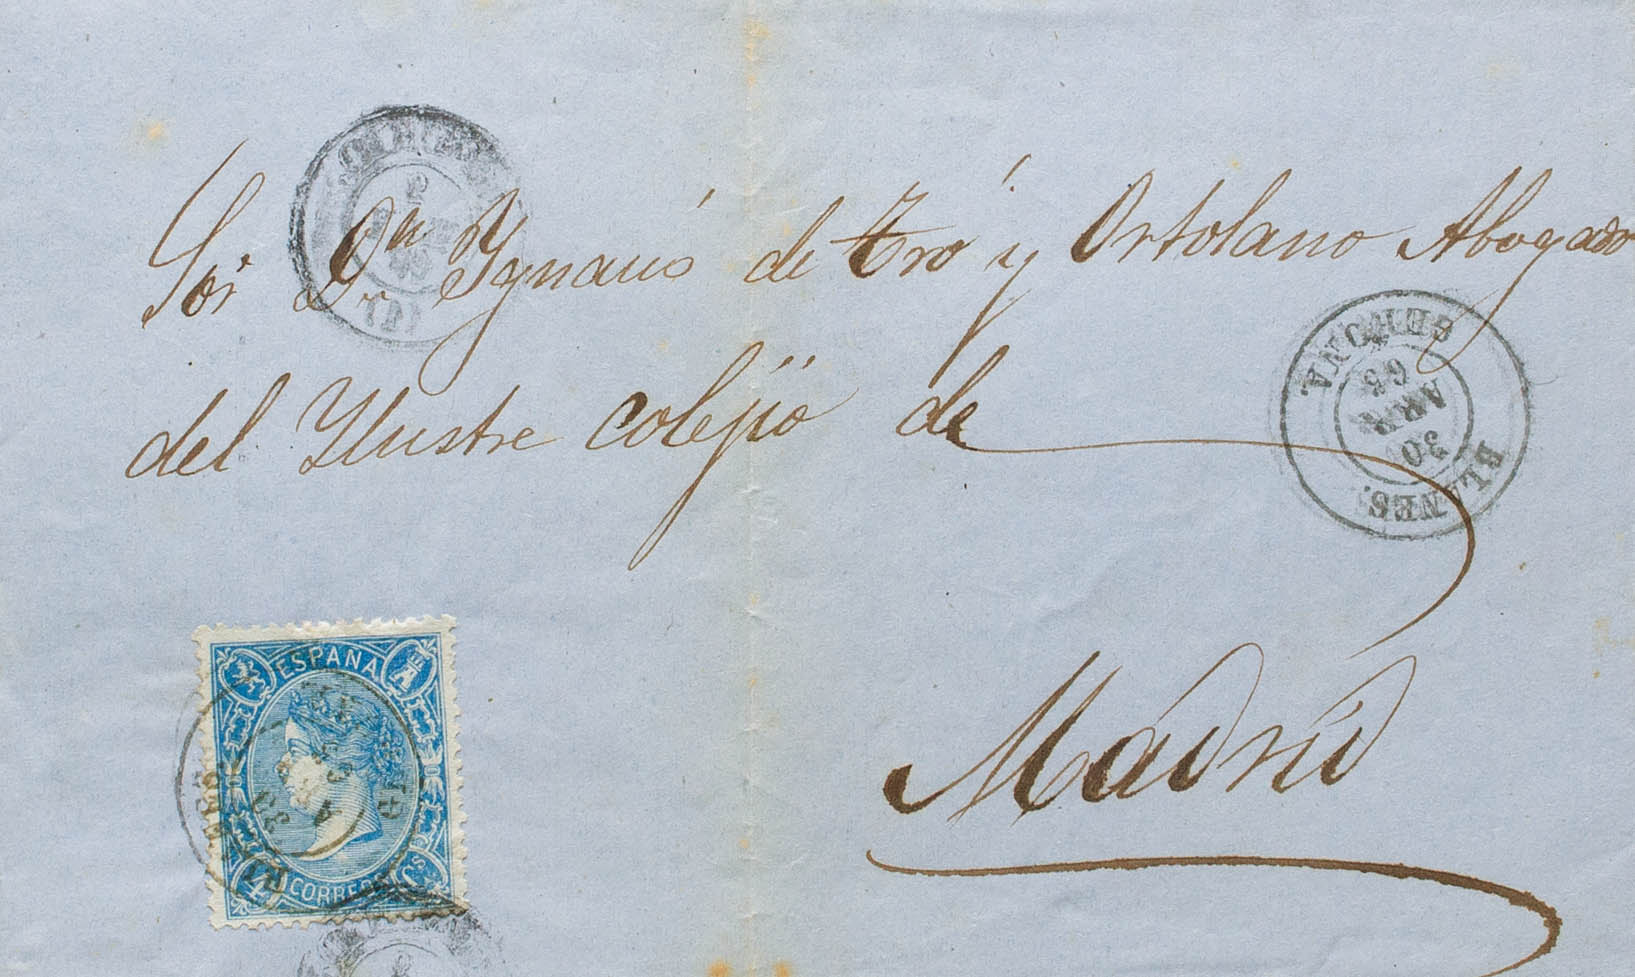 Sor Dn Ygnacio de Tro y Ortolano Abogado
del Ylustre Colejio de
Madrid
GERONA
30
ABR
65
BLANES.
ESPAÑA
4 CORREOS
DE
Cs